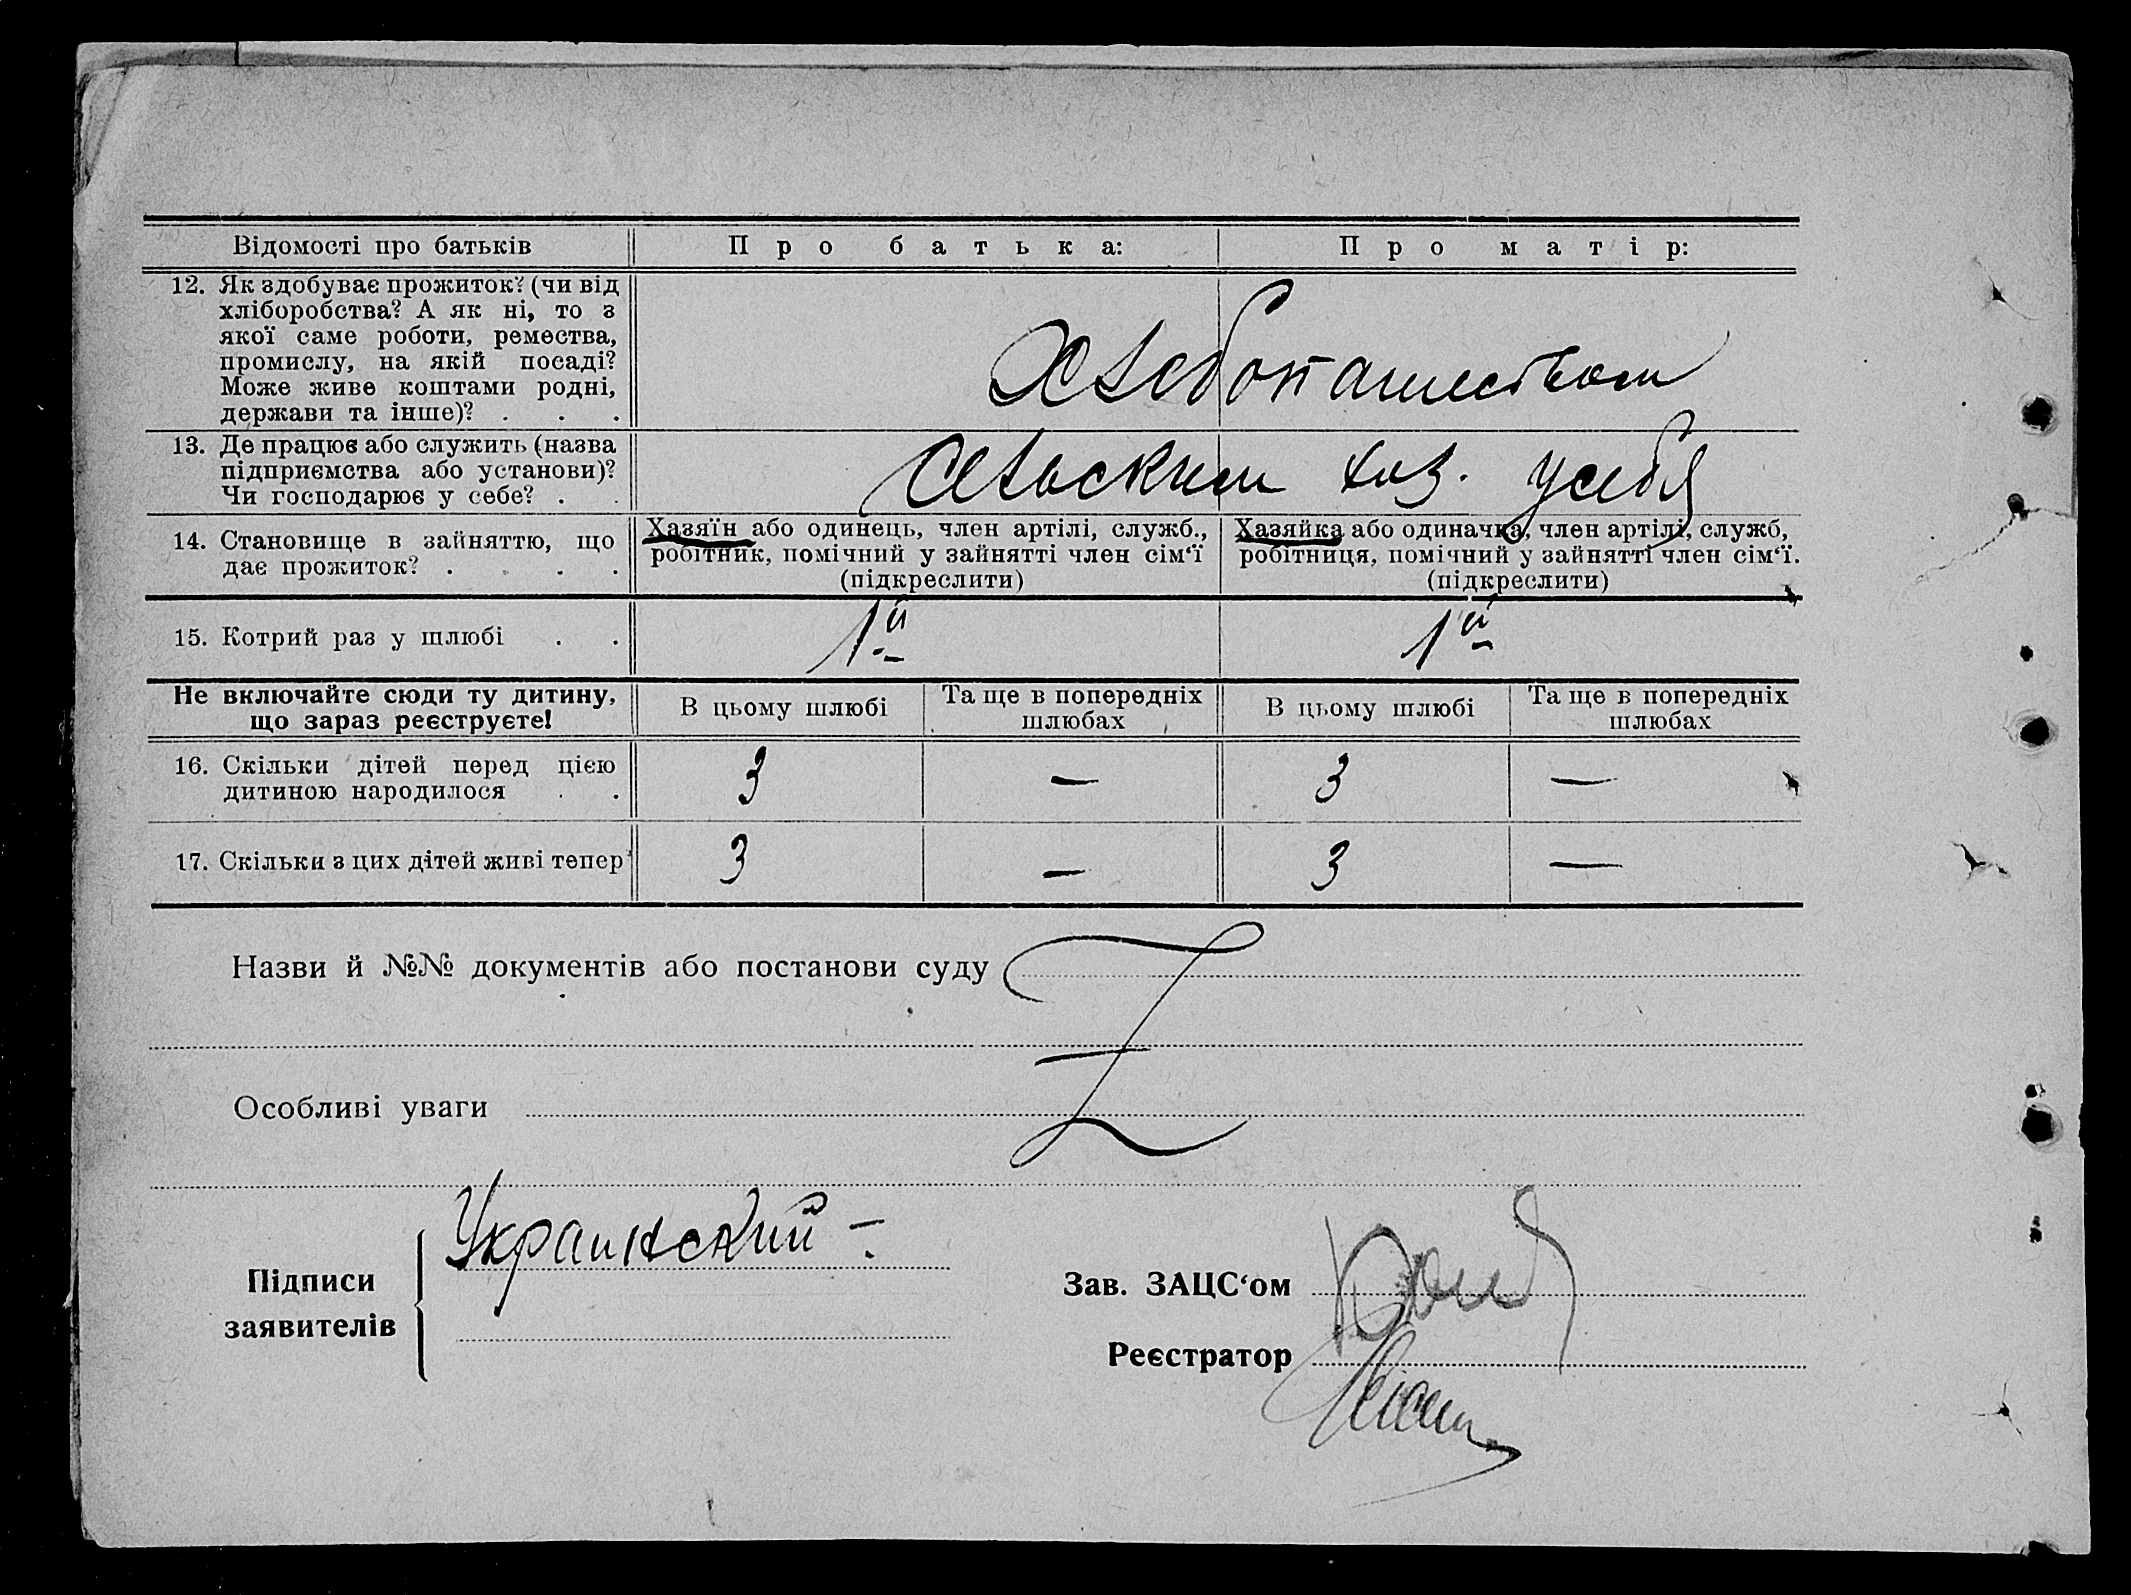 Відомості про батьків
Про батька:
Про матір:
12. Як здобуває прожиток? (чи від
хліборобства? А як ні, то з
якої саме роботи, ремества,
промислу, на якій посаді?
Може живе коштами родні,
держави та інше)? . . .
Хлебопашеством
13. Де працює або служить (назва
підприємства або установи)?
Чи господарює у себе? . .
Сельским хоз. у себя
14. Становище в зайняттю, що
дає прожиток? . . . .
Хазяїн або одинець, член артілі, служб.,
робітник, помічний у зайнятті член сім‘ї
(підкреслити)
Хазяйка або одиначка, член артілі, служб,
робітниця, помічний у зайнятті член сім‘ї.
(підкреслити)
15. Котрий раз у шлюбі . .
1й
1й
Не включайте сюди ту дитину,
що зараз реєструєте!
В цьому шлюбі
Та ще в попередніх
шлюбах
В цьому шлюбі
Та ще в попередніх
шлюбах
16. Скільки дітей перед цією
дитиною народилося . .
3 — 3 —
17. Скільки з цих дітей живі тепер
3 — 3 —
Назви й №№ документів або постанови суду
Особливі уваги
Підписи
заявителів
Украинский
Зав. ЗАЦС‘ом
Реєстратор